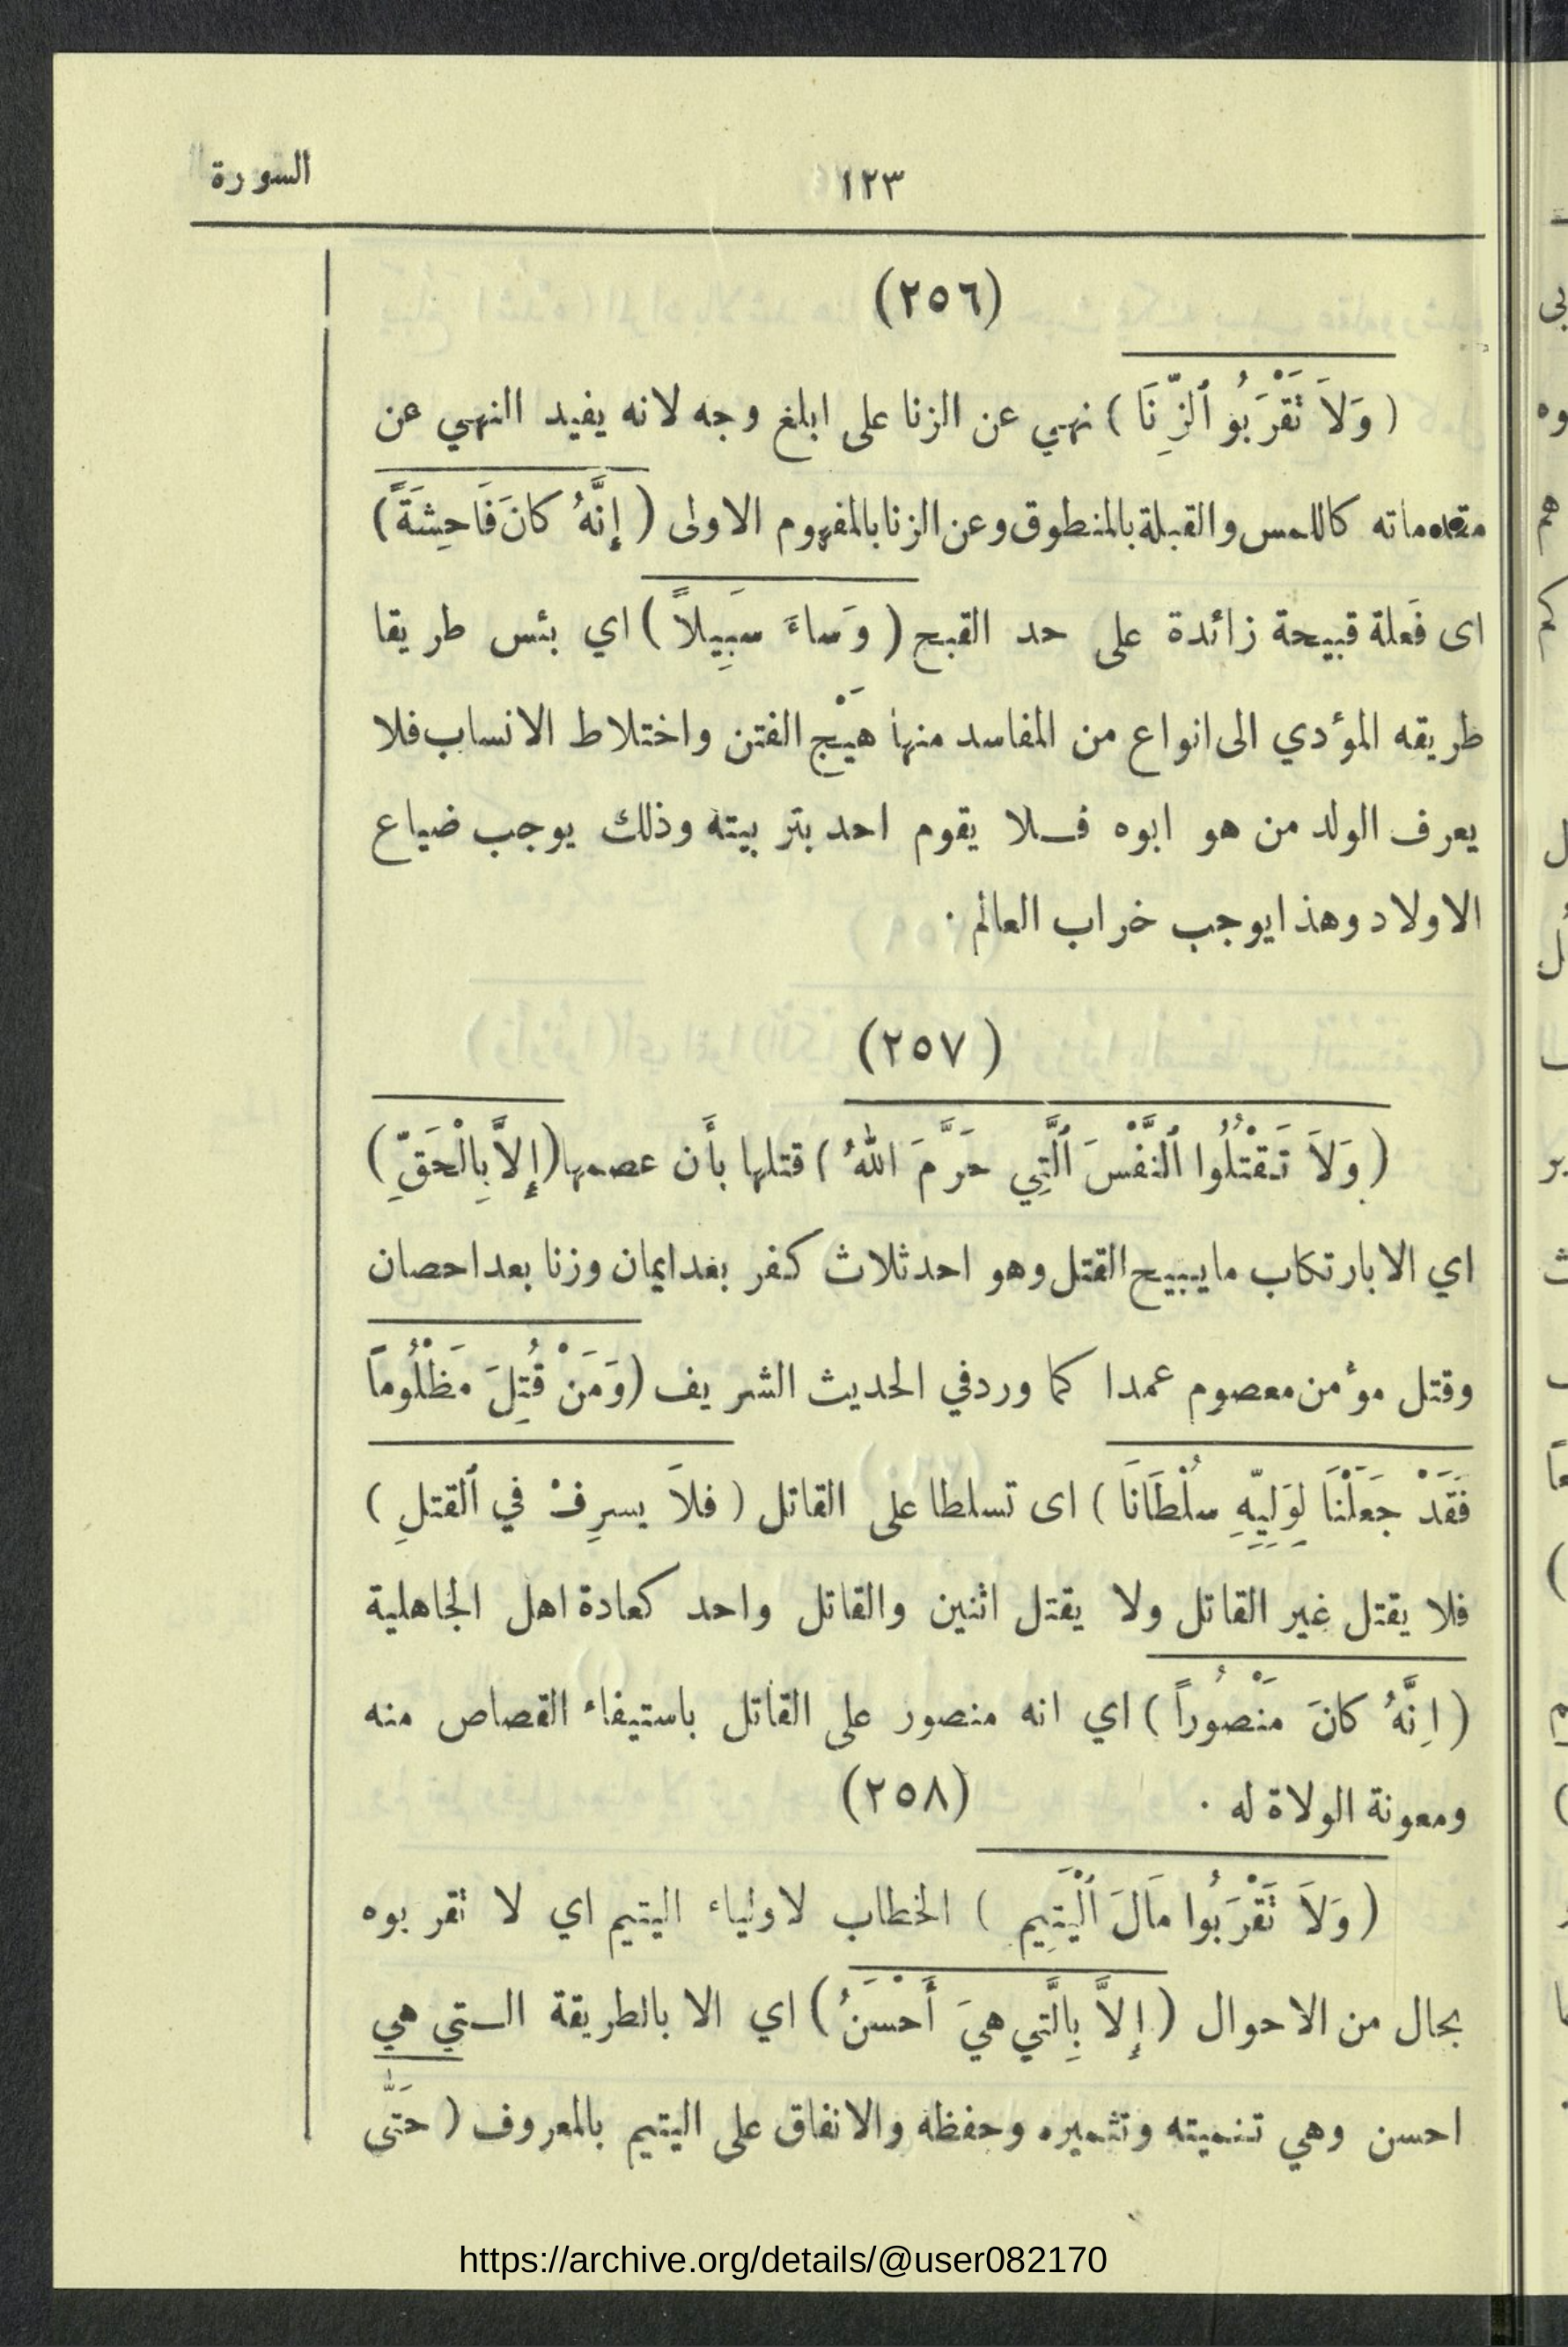 السورة
١٢٣
(٢٥٦)
( وَلاَ تَقْرَبُو ٱلزِّنَا ) نهي عن الزنا على ابلغ وجه لانه يفيد النهي عن
مقدماته كاللمس والقبلة بالمنطوق وعن الزنا بالمفهوم الاولى ( إِنَّهُ كانَ فَاحِشَةً )
اى فَعلة قبيحة زائدة على حد القبح ( وَساءَ سَبِيلاً ) اي بئس طريقا
طريقه المؤدي الى انواع من المفاسد منها هَيْج الفتن واختلاط الانساب فلا
يعرف الولد من هو ابوه فلا يقوم احد بتربيته وذلك يوجب ضياع
الاولاد وهذا يوجب خراب العالم ·
(٢٥٧)
( وَلاَ تَقْتُلُوا ٱلنَّفْسَ ٱلَّتِي حَرَّمَ اللهُ ) قتلها بأَن عصمها (إِلاَّ بِالْحَقِّ )
اي الا بارتكاب ما يبيح القتل وهو احد ثلاث كفر بعد ايمان وزنا بعد احصان
وقتل مؤمن معصوم عمدا كما ورد في الحديث الشريف ( وَمَنْ قُتِلَ مَظْلُوماً
فَقَدْ جَعَلْنَا لِوَلِيِّهِ سُلْطَانَا ) اى تسلطا على القاتل ( فلاَ يسرِفْ في ٱلقتلِ )
فلا يقتل غير القاتل ولا يقتل اثنين والقاتل واحد كعادة اهل الجاهلية
( اِنَّهُ كانَ مَنْصُوراً ) اي انه منصور على القاتل باستيفاء القصاص منه
ومعونة الولاة له ·
(٢٥٨)
( وَلاَ تَقْرَبُوا مَالَ ٱلْيَتِيم ) الخطاب لاولياء اليتيم اي لا تقربوه
بحال من الاحوال ( إِلاَّ بِالَّتي هيَ أَحْسَنُ ) اي الا بالطريقة الـتي هي
احسن وهي تنميته وتثميره وحفظه والانفاق على اليتيم بالمعروف ( حَتَّى
https://archive.org/details/@user082170